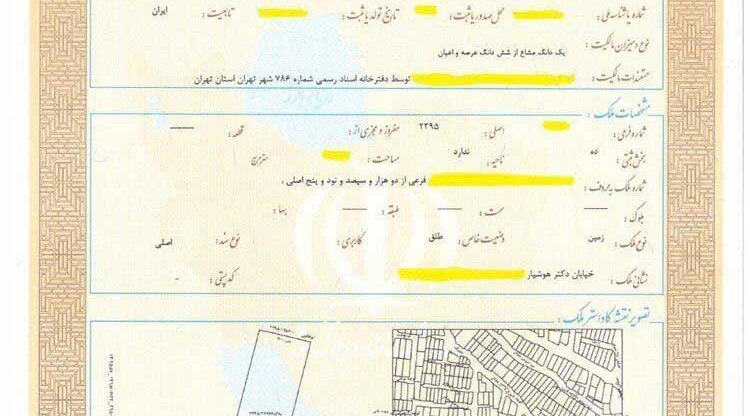 شماره یا شناسه ملی : محل صدور یا ثبت : تاریخ تولد یا ثبت : تابعیت : ایران
نوع و میزان مالکیت :
یک دانگ مشاع از شش دانگ عرصه و اعیان
مستندات مالکیت : توسط دفترخانه اسناد رسمی شماره ۷۸۶ شهر تهران استان تهران
مشخصات ملک :
شماره فرعی : اصلی : ۲۳۹۵ مفروز و مجزی از : —— قطعه : ——
بخش ثبتی : ده ناحیه : ندارد مساحت : مترمربع
شماره ملک به حروف : فرعی از دو هزار و سیصد و نود و پنج اصلی ،
بلوک : —— سمت : —— طبقه : ——
نوع ملک : زمین وضعیت خاص : طلق کاربری : —— نوع سند : اصلی
نشانی ملک : خیابان دکتر هوشیار کد پستی : -
تصویر نقشه کاداستر ملک :